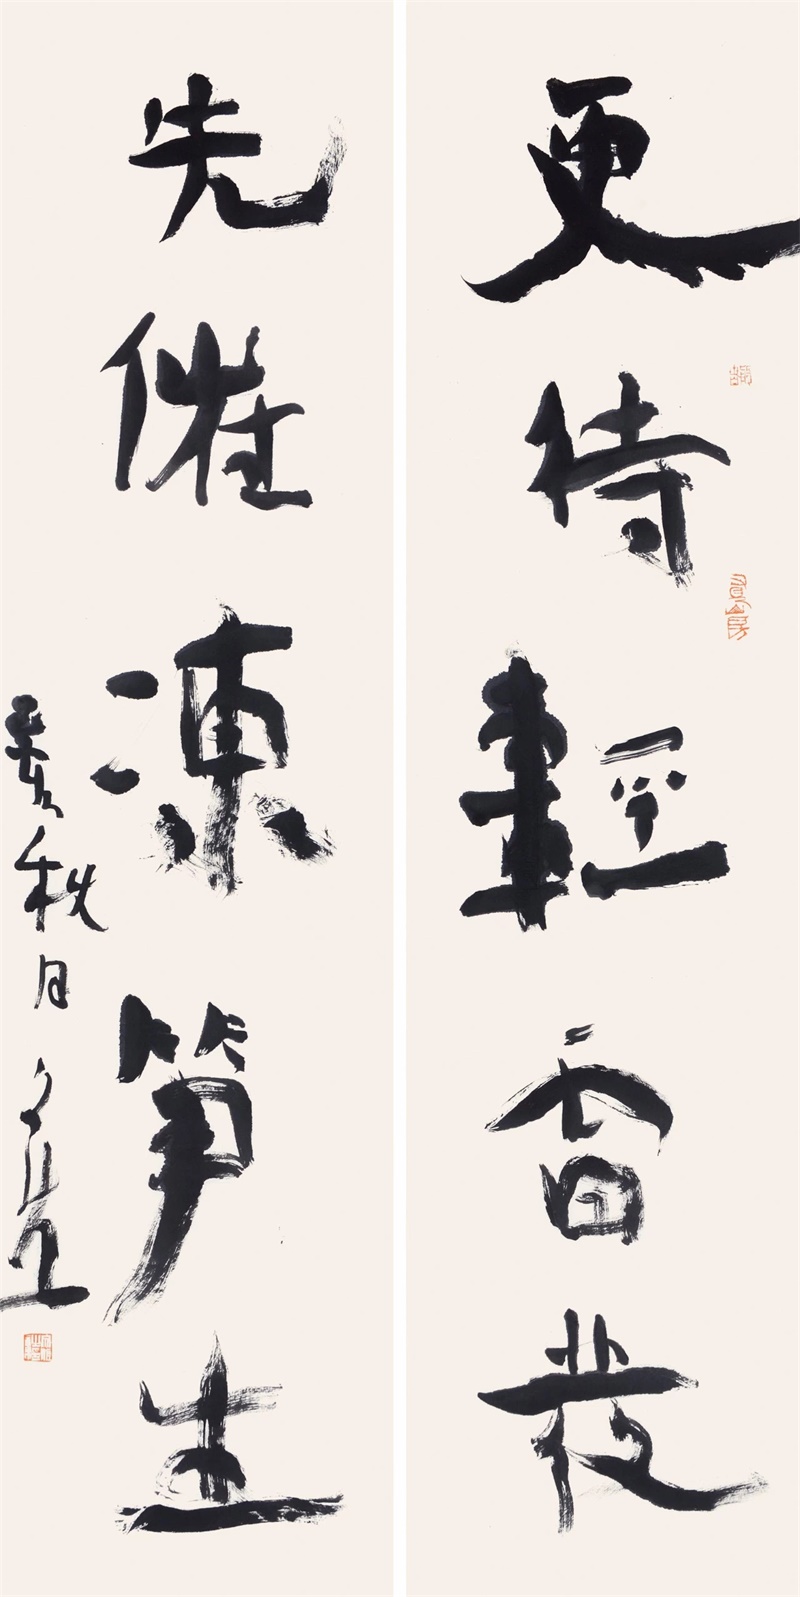 更待輕雷發
先催凍筍生
秋月